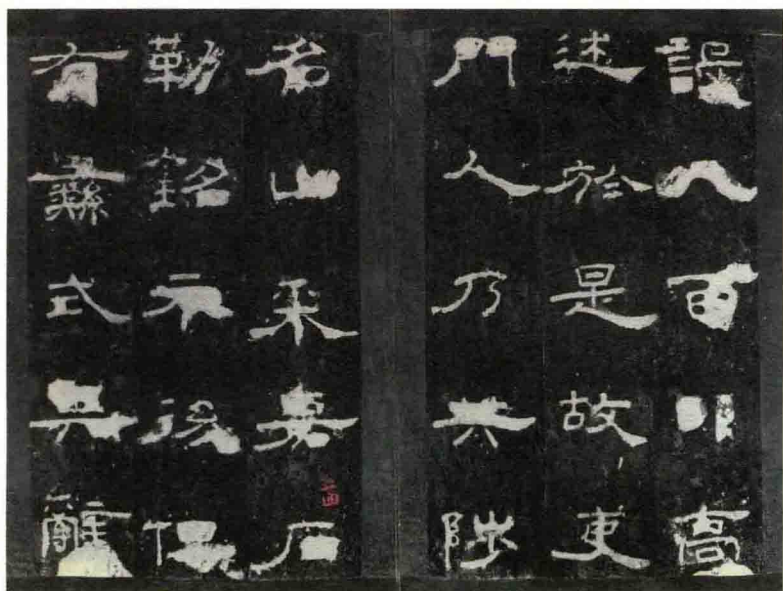 設凡百卬高
述於是故吏
門人乃共陟
名山采嘉石
勒銘示後俾
有彝式其辭